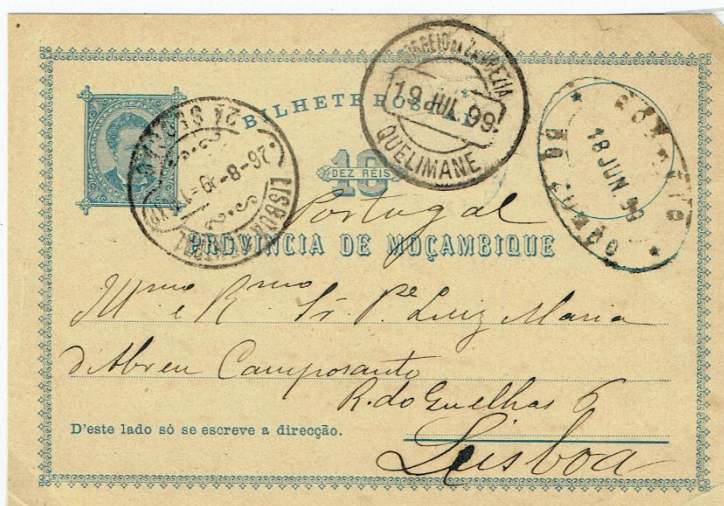 BILHETE POSTAL
10
DEZ RÉIS
CORREIO DA ZAMBEZIA
19 JUL. 99
QUELIMANE
18 JUN. 99
DO ZUMBO
2A SECÇÃO
26-8-99
LISBOA CENTRAL
Portugal
PROVINCIA DE MOÇAMBIQUE
Illmo e Rmo Sr. Pe Luiz Maria
d'Abreu Camposanto
R. do Quelhas 6
D'este lado só se escreve a direcção.
Lisboa